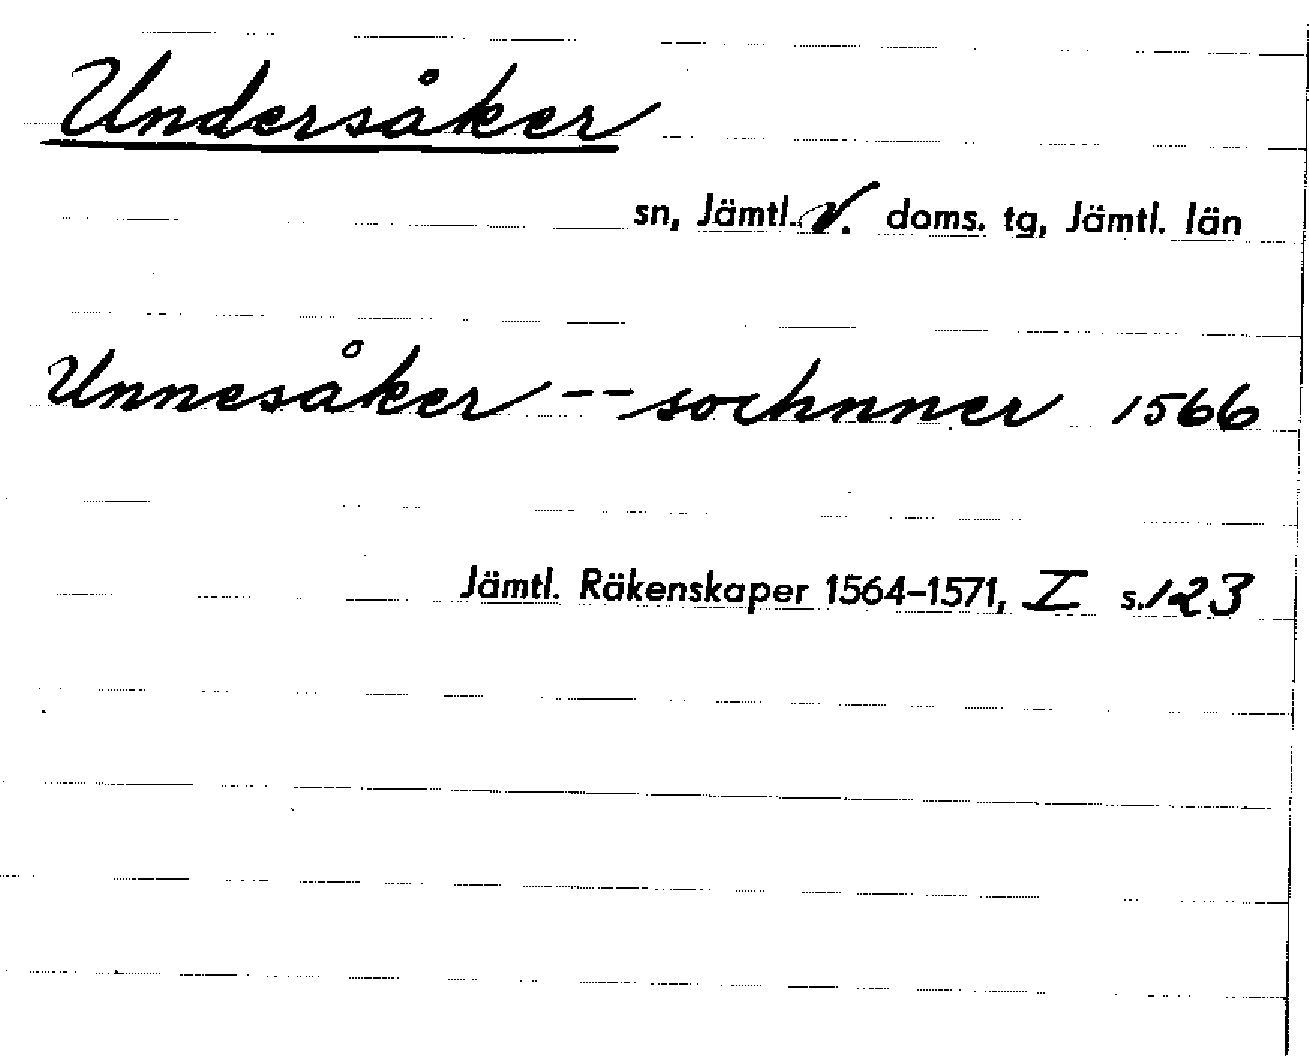 Undersåker
sn, Jämtl. V. doms. tg, Jämtl. län
Unnesåker -- sochnner 1566
Jämtl. Räkenskaper 1564-1571, I s. 123